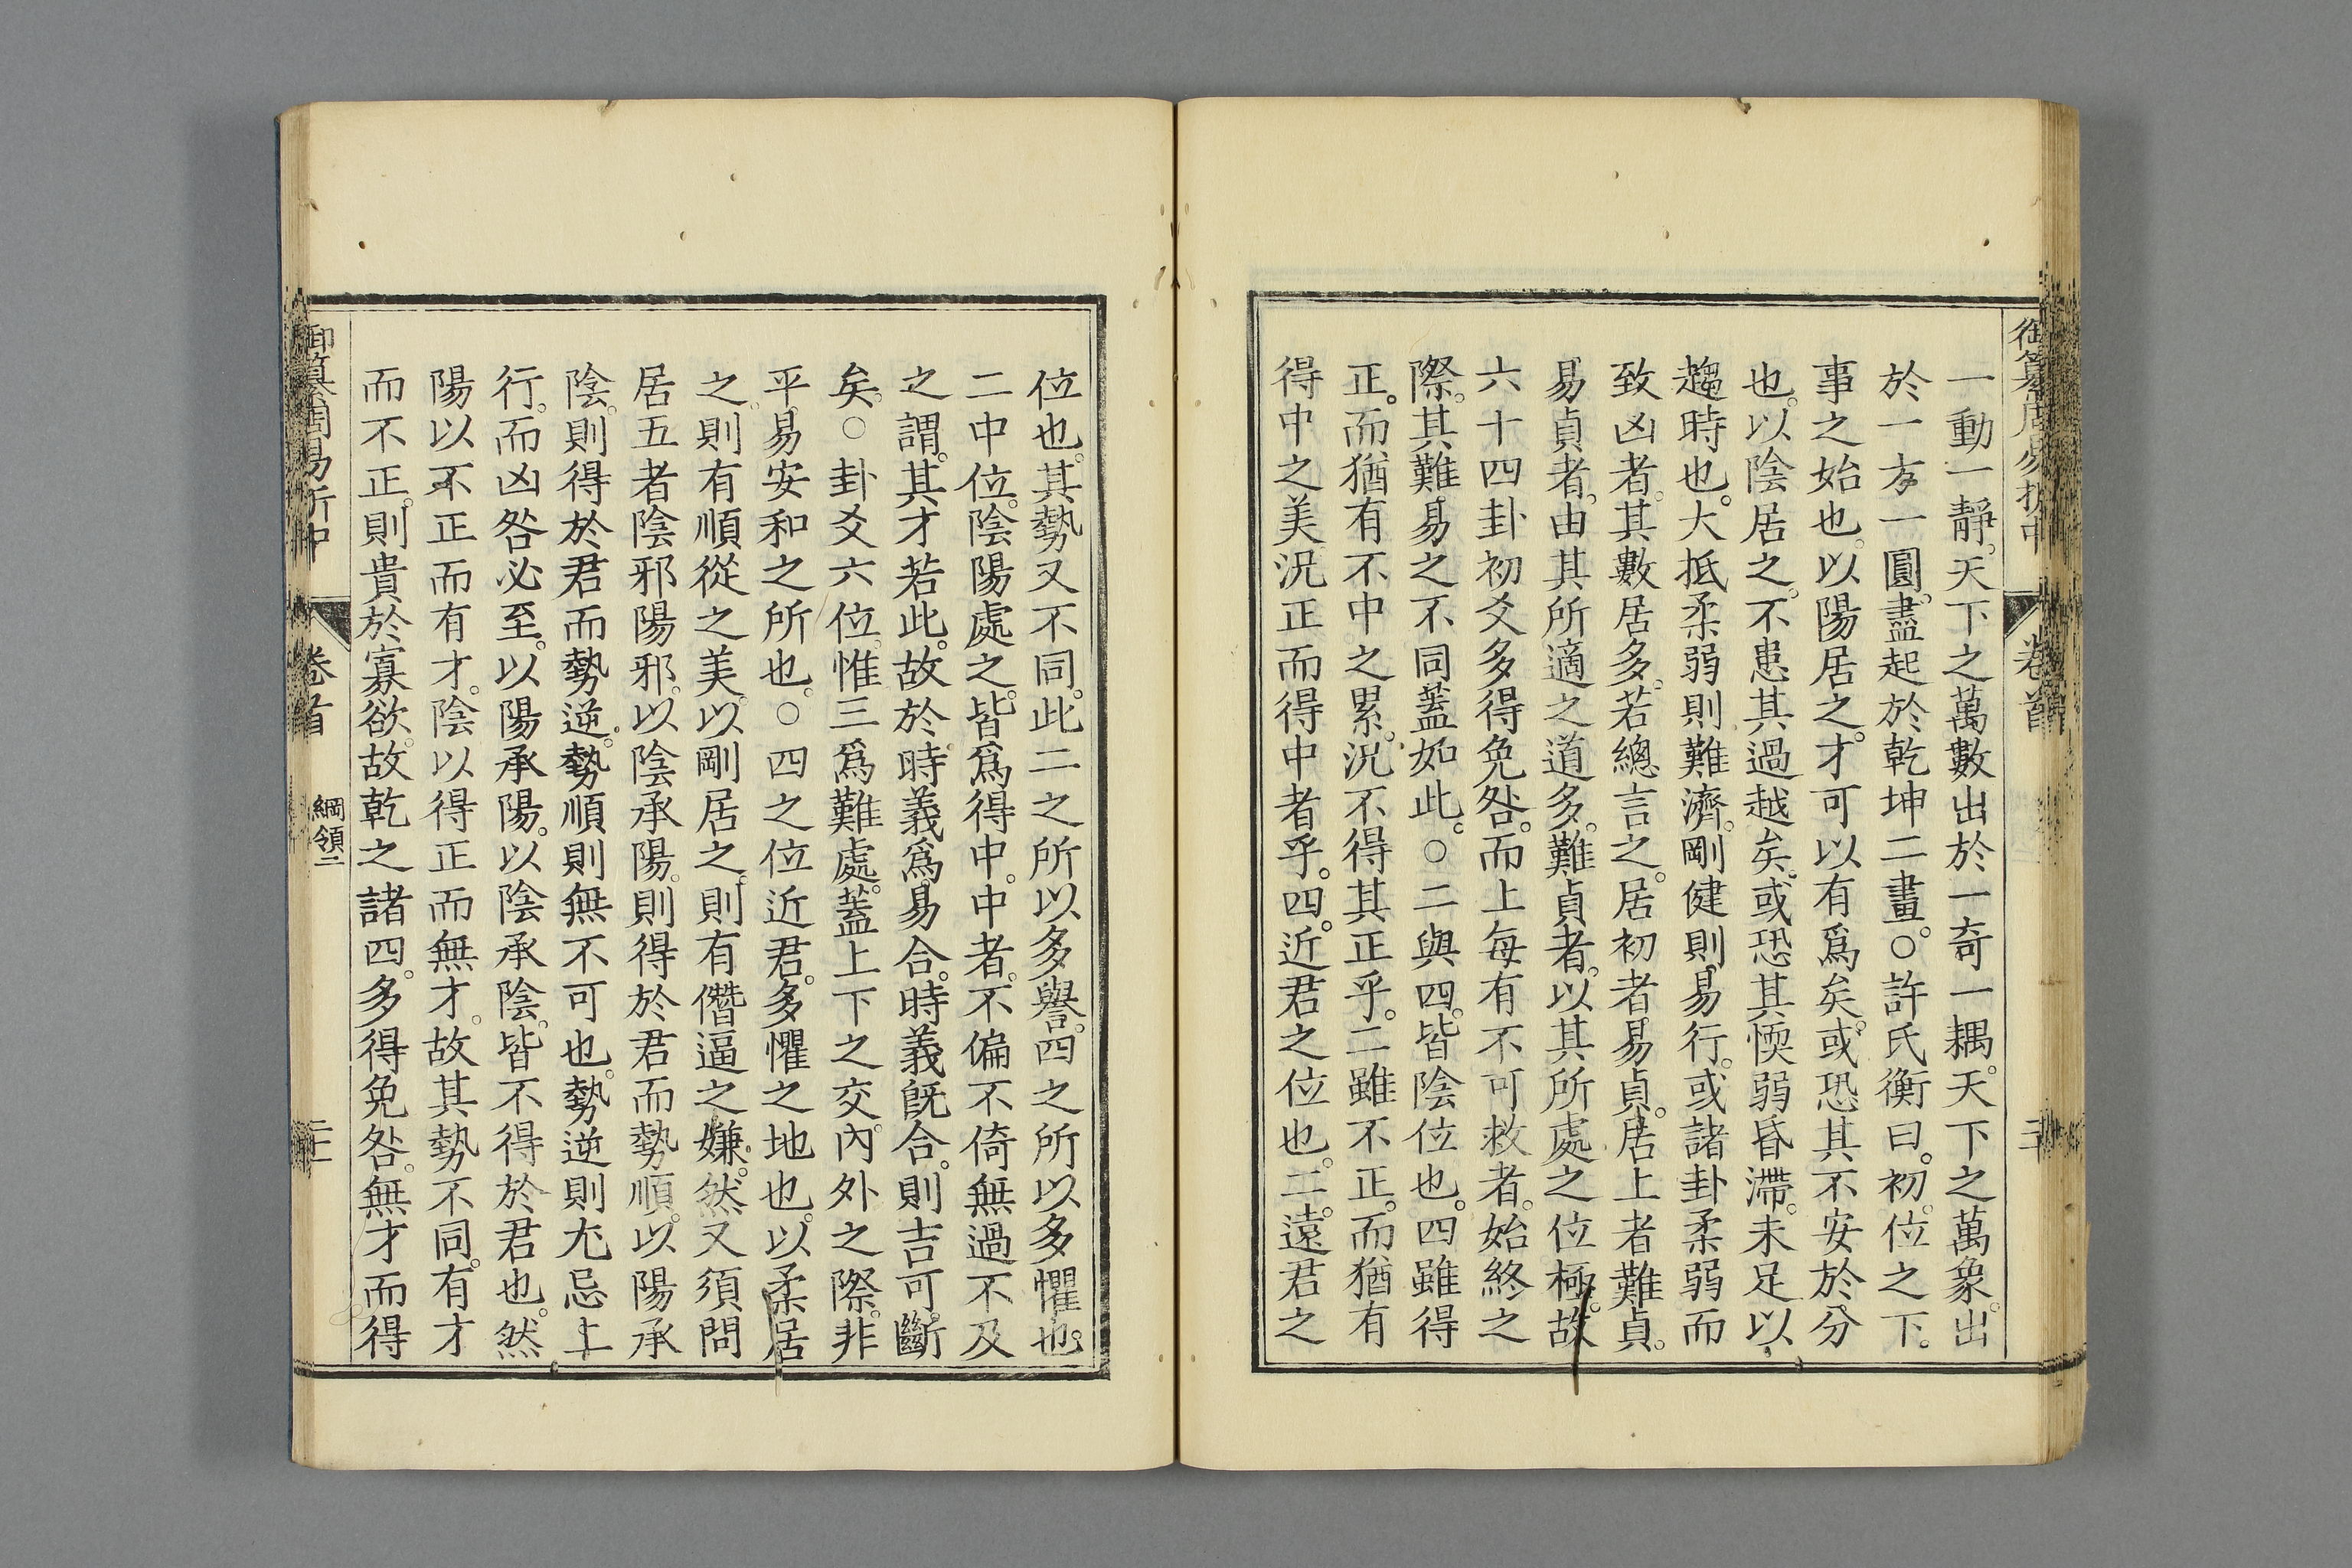 御纂周易折中 卷首 二十
一動一靜。天下之萬數出於一奇一耦。天下之萬象。出
於一方一圓。盡起於乾坤二畫。○許氏衡曰。初。位之下。
事之始也。以陽居之。才可以有爲矣。或恐其不安於分
也。以陰居之。不患其過越矣。或恐其愞弱昏滯。未足以
趨時也。大抵柔弱則難濟。剛健則易行。或諸卦柔弱而
致凶者。其數居多。若總言之。居初者易貞。居上者難貞。
易貞者。由其所適之道多。難貞者。以其所處之位極。故
六十四卦初爻多得免咎。而上每有不可救者。始終之
際。其難易之不同蓋如此。○二與四。皆陰位也。四雖得
正。而猶有不中之累。況不得其正乎。二雖不正。而猶有
得中之美況正而得中者乎。四。近君之位也。二。遠君之
位也。其勢又不同。此二之所以多譽。四之所以多懼也。
二中位。陰陽處之。皆爲得中。中者。不偏不倚無過不及
之謂。其才若此。故於時義爲易合。時義既合。則吉可斷
矣。○卦爻六位。惟三爲難處。蓋上下之交。內外之際。非
平易安和之所也。○四之位近君。多懼之地也。以柔居
之。則有順從之美。以剛居之。則有僭逼之嫌。然又須問
居五者陰邪陽邪。以陰承陽。則得於君而勢順。以陽承
陰。則得於君而勢逆。勢順則無不可也。勢逆則尤忌上
行。而凶咎必至。以陽承陽。以陰承陰。皆不得於君也。然
陽以不正而有才。陰以得正而無才。故其勢不同。有才
而不正。則貴於寡欲。故乾之諸四。多得免咎。無才而得
御纂周易折中 卷首 綱領二